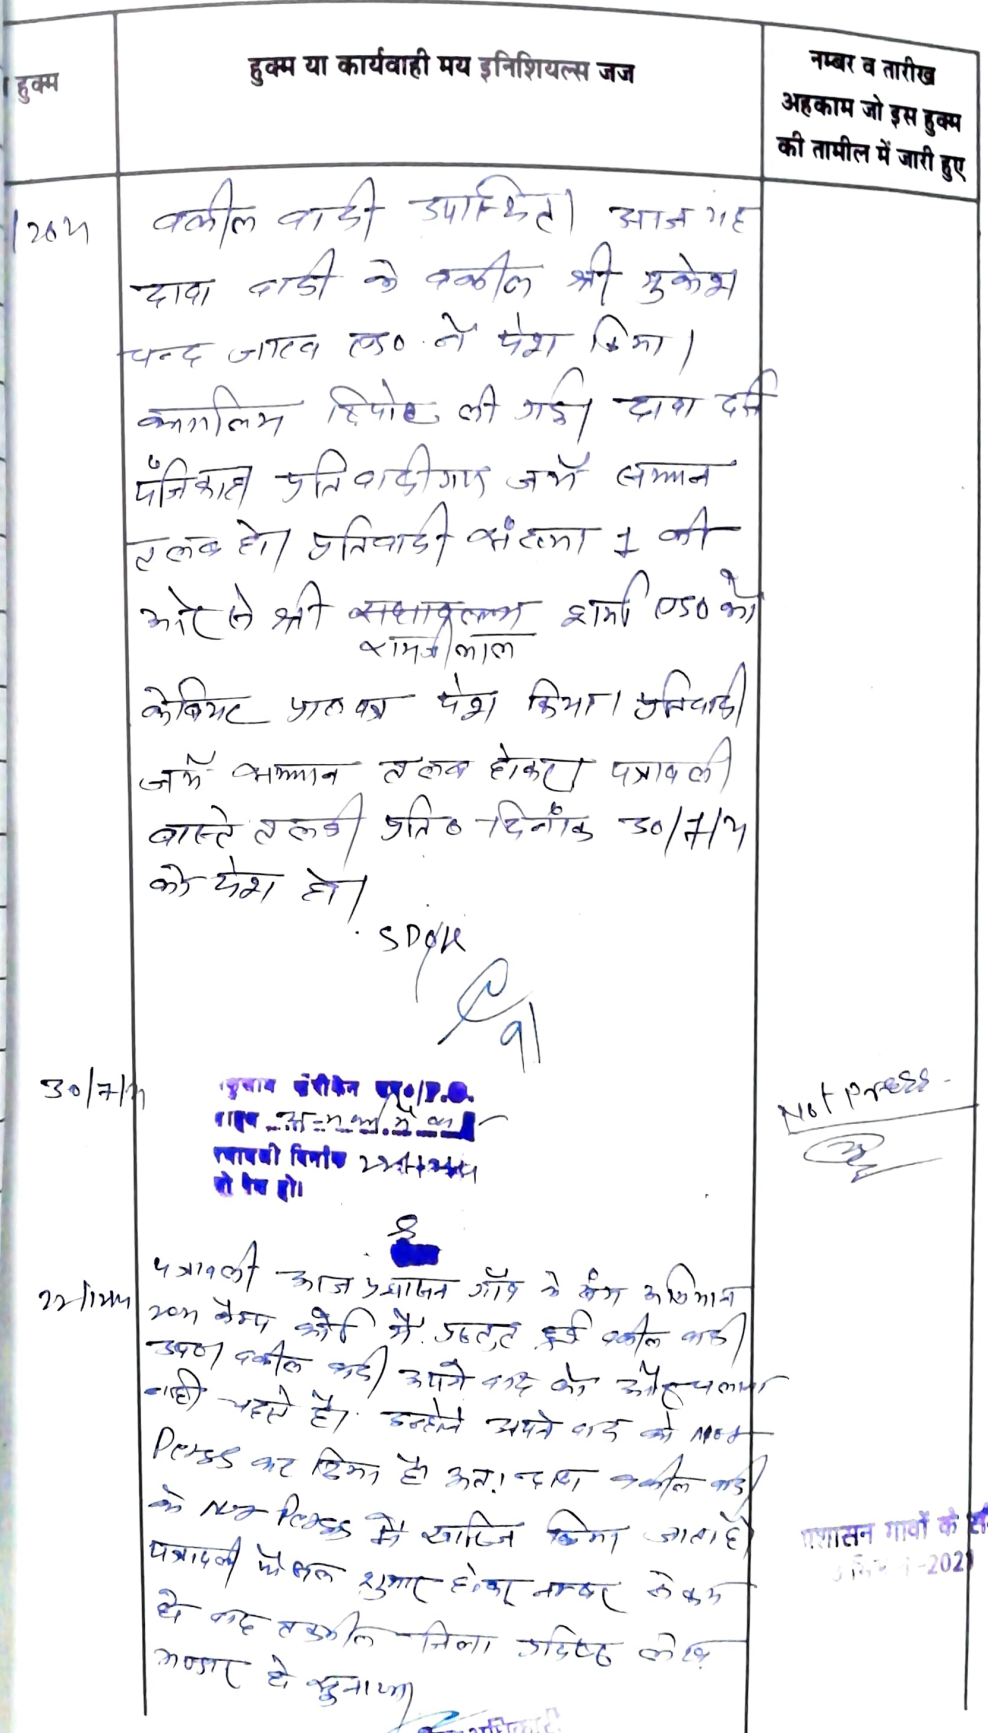 हुक्म
हुक्म या कार्यवाही मय इनिशियल्स जज
नम्बर व तारीख
अहकाम जो इस हुक्म
की तामील में जारी हुए
वकील वादी उपस्थित। आज यह
दावा वादी के वकील श्री मुकेश
चन्द जाटव एड० ने पेश किया।
रिपोर्ट ली गई। दावा दर्ज
पंजिका हो प्रतिवादीगण जर्ये सम्मन
तलब हो। प्रतिवादी संख्या 1 की
ओर से श्री शर्मा एड० को
रामजीलाल
केवियट प्रा०पत्र पेश किया। प्रतिवादी
जर्ये सम्मन तलब होकर पत्रावली
वास्ते तलबी प्रति० दिनांक 30/7/21
को पेश हो।
SDO/K
30/7/21
दिनांक
को पेश हो।
Not Press
पत्रावली आज प्रशासन गाँव के संग अभियान
2021 कैम्प कोर्ट में प्रस्तुत हुई वकील वादी
उप० वकील वादी अपने वाद को और चलाना
नहीं चाहते है। उन्होंने अपने वाद को Not
Press कर दिया है। अतः दावा वकील वादी
के Not Press में खारिज किया जाता है।
पत्रावली फैसल शुमार होकर नम्बर से कम
हो बाद तकमील जिला
हो सुनाया
प्रशासन गावों के
-2021